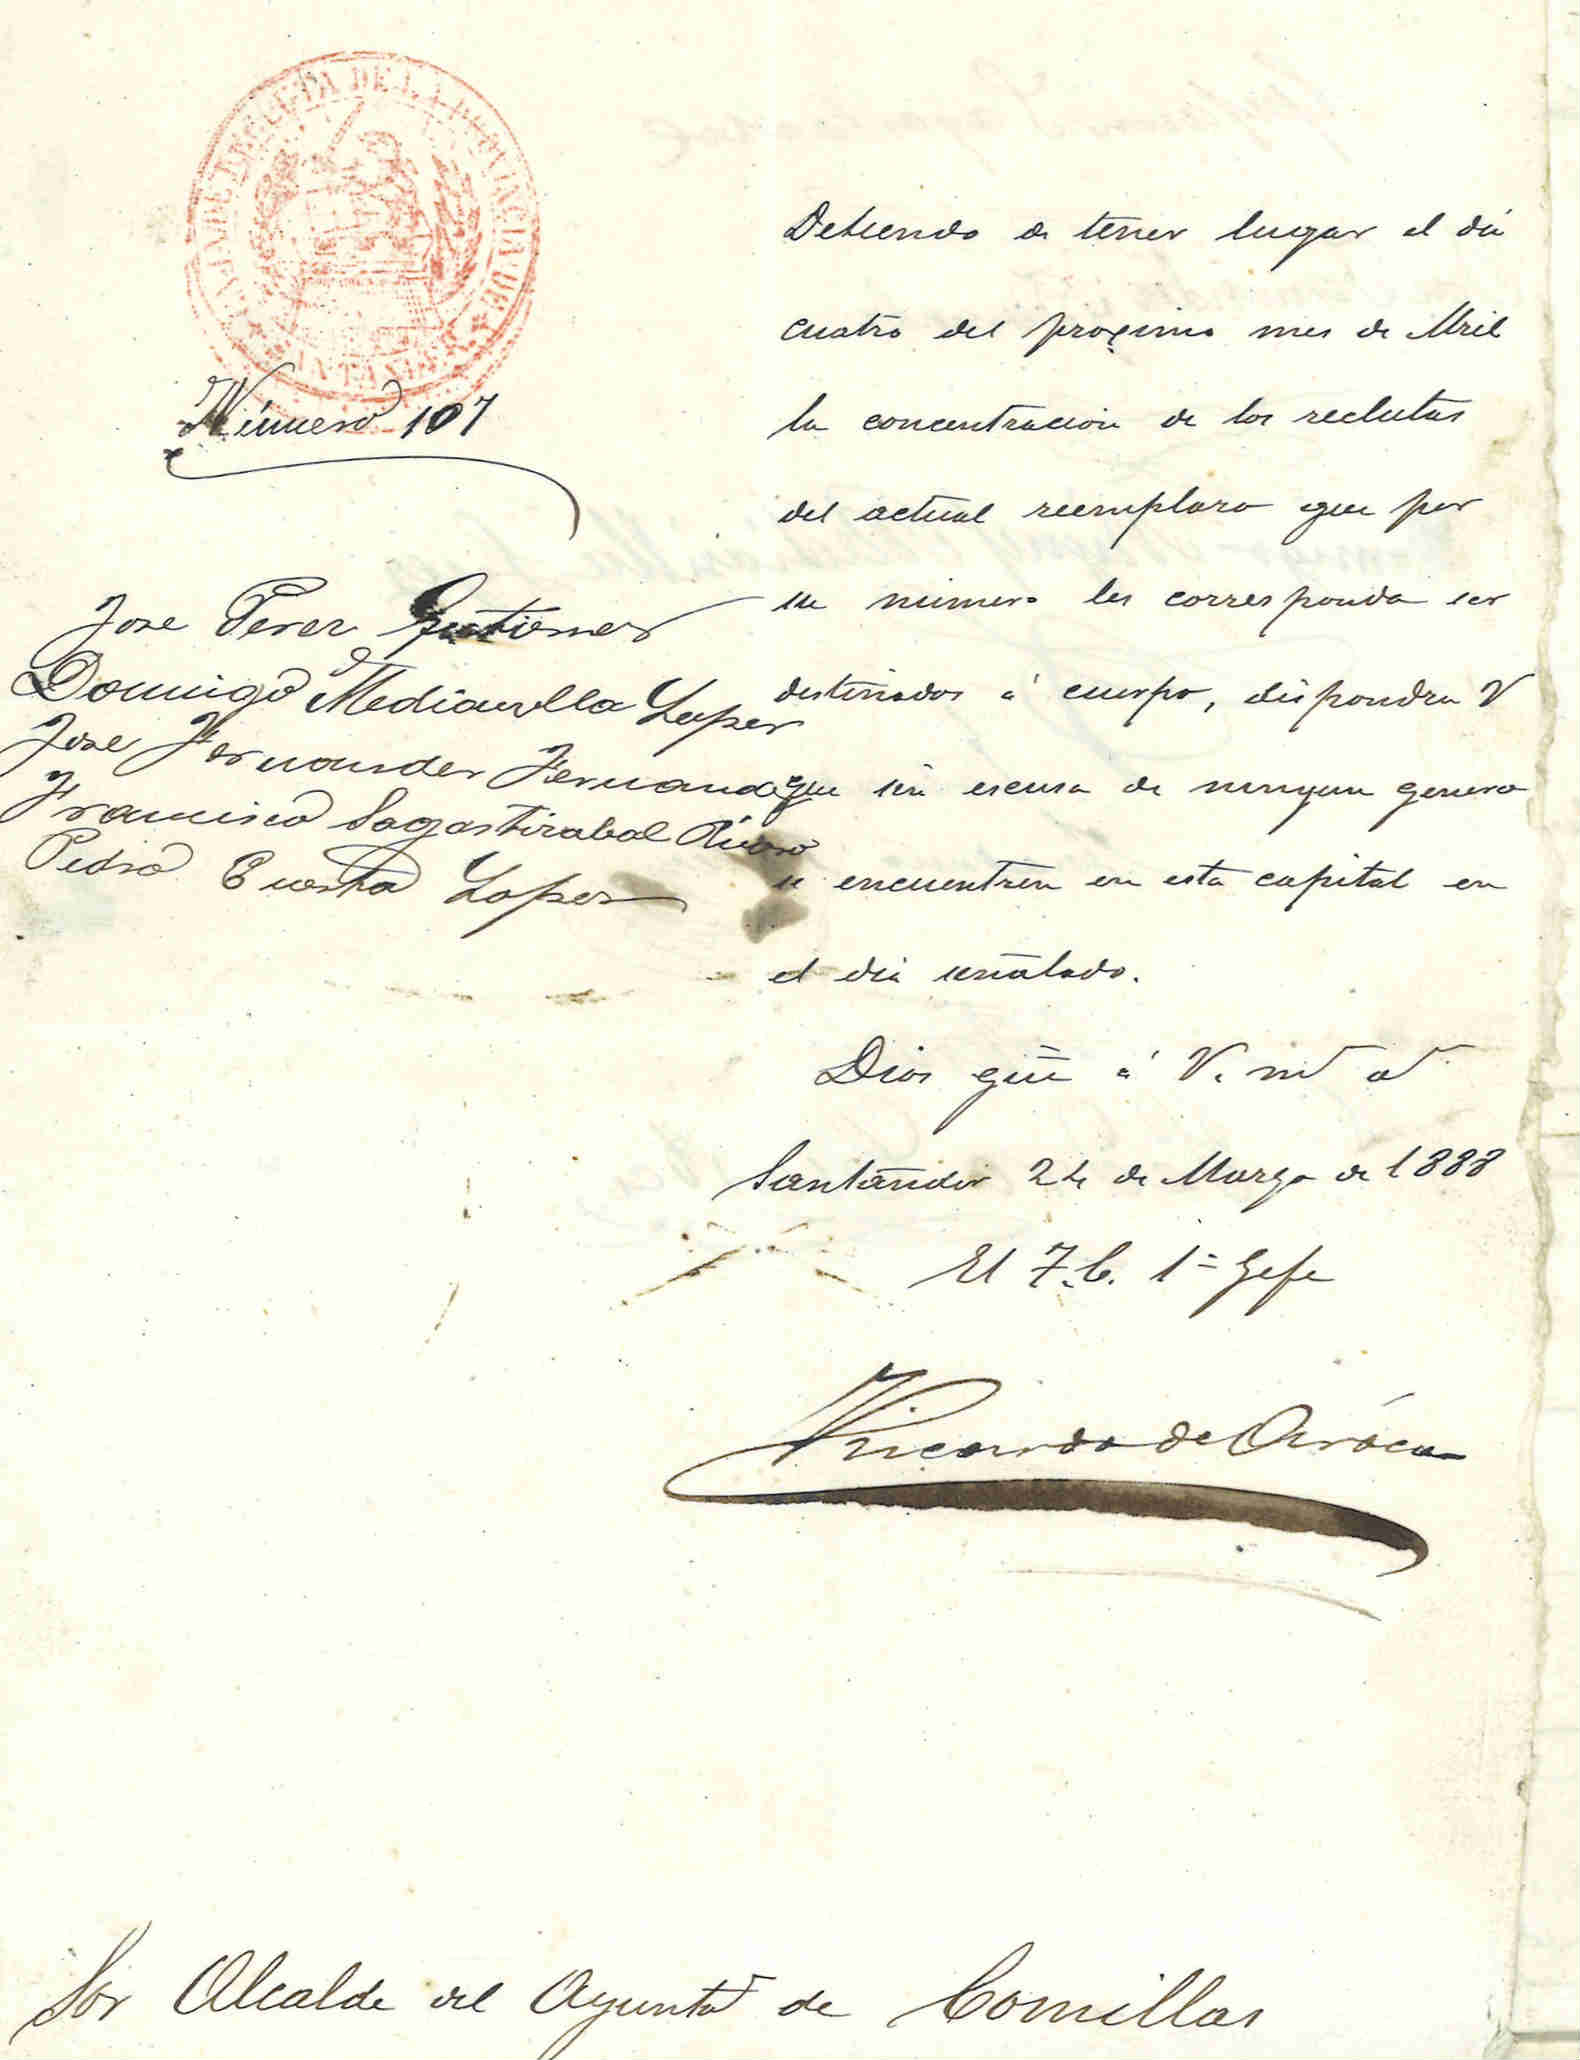 DE LA PROVINCIA DE
Número 107
Jose Perez Gutierrez
Domingo Mediavilla Lopez
Jose Fernandez Fernandez
Francisco Sagastizabal
Pedro Cuesta Lopez
Debiendo de tener lugar el dia
cuatro del proximo mes de Abril
la concentracion de los reclutas
del actual reemplazo que por
su numero les corresponda ser
destinados á cuerpo, dispondra V
que sin escusa de ningun genero
se encuentren en esta capital en
el dia señalado.
Dios gũe á V. ms as
Santander 24 de Marzo de 1888
El T.C. 1º Gefe
Ricardo de
Sor Alcalde del Ayunto de Comillas